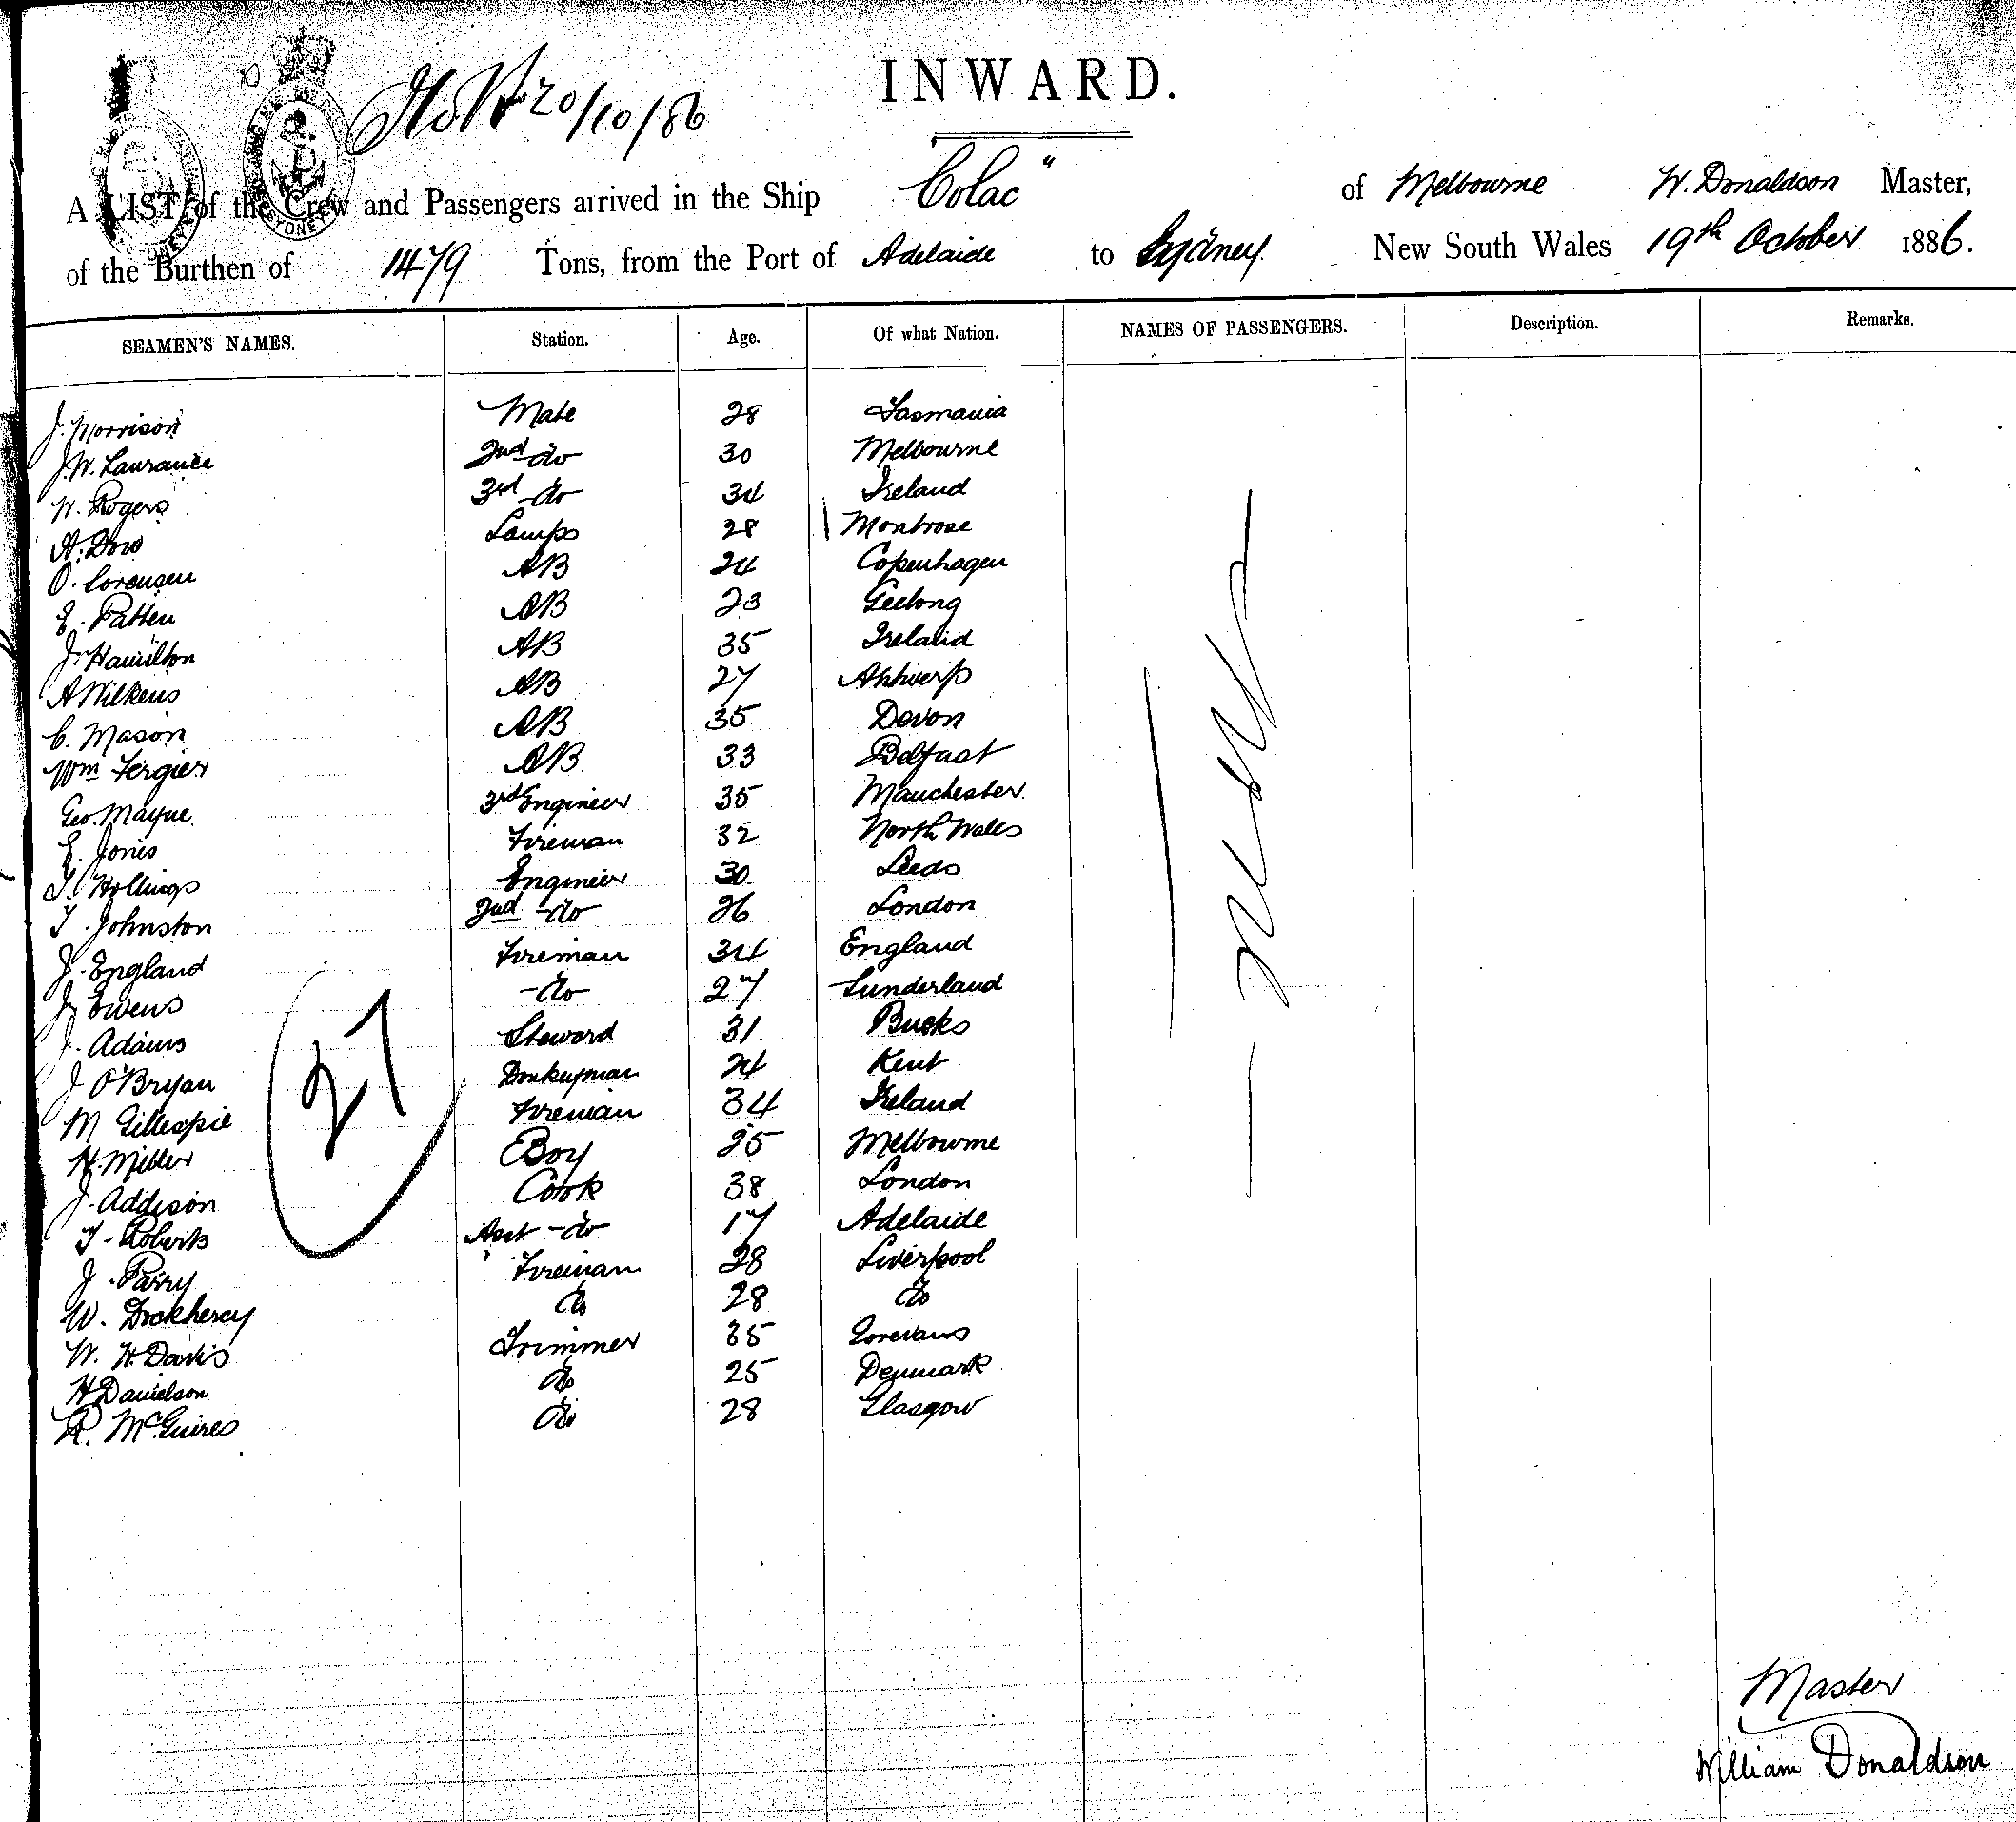 INWARD.
20/10/86
A LIST of the Crew and Passengers arrived in the Ship "Colac" of Melbourne W. Donaldson Master,
of the Burthen of 1479 Tons, from the Port of Adelaide to Sydney New South Wales 19th October 1886.
SEAMEN'S NAMES. Station. Age. Of what Nation. NAMES OF PASSENGERS. Description. Remarks.
J. Morrison Mate 28 Tasmania
J.W. Laurance 2nd do 30 Melbourne
W. Rogers 3rd do 34 Ireland
A. Dow Lamps 28 Montrose
O. Lorensen AB 24 Copenhagen
E. Patten AB 23 Geelong
J. Hamilton AB 35 Ireland
A Wilkens AB 27 Antwerp
C. Mason AB 35 Devon
Wm Fergier AB 33 Belfast
Geo. Mayne 3rd Engineer 35 Manchester
E. Jones Fireman 32 North Wales
T. Hollings Engineer 30 Leeds
T. Johnston 2nd do 26 London
J. England Fireman 34 England
J. Owens do 27 Sunderland
J. Adams Steward 31 Bucks
J O'Bryan Donkeyman 24 Kent
M Gillespie Fireman 34 Ireland
H. Miller Boy 25 Melbourne
J. Addison Cook 38 London
T. Roberts Asst do 17 Adelaide
J. Parry Fireman 28 Liverpool
W. Dockhercy do 28 do
W. H. Davis Trimmer 35
H Danielson do 25 Denmark
R. McGuires do 28 Glasgow
27
Master
William Donaldson